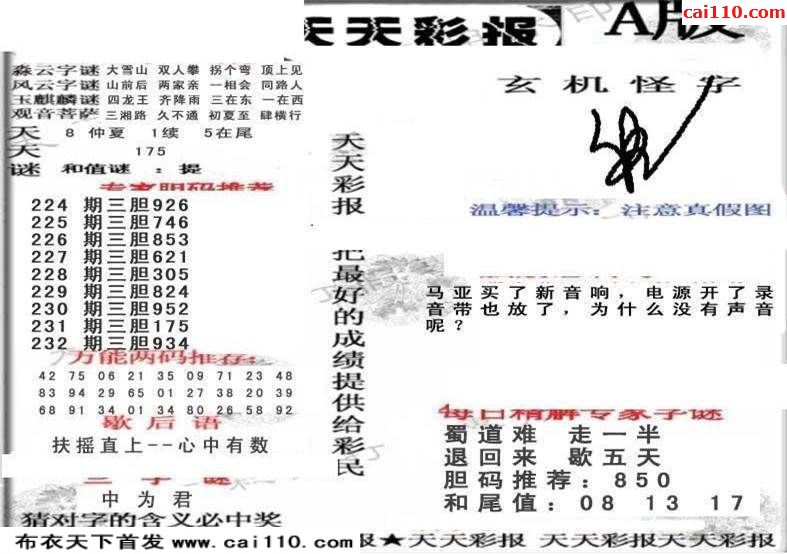 cai110.com
天天彩报】 A版
淼云字谜 大雪山 双人攀 拐个弯 顶上见
风云字谜 山前后 两家亲 一相会 同路人
玉麒麟谜 四龙王 齐降雨 三在东 一在西
观音菩萨 三湘路 久不通 初夏至 肆横行
天 8 仲夏 1续 5在尾
天 175
谜 和值谜 : 提
专家胆码推荐
224 期三胆926
225 期三胆746
226 期三胆853
227 期三胆621
228 期三胆305
229 期三胆824
230 期三胆952
231 期三胆175
232 期三胆934
万能两码推荐:
42 75 06 21 35 09 71 23 48
83 94 29 65 01 27 38 20 39
68 91 34 01 34 80 26 58 92
歇后语
扶摇直上--心中有数
三字谜
中为君
猜对字的含义必中奖
天天彩报 把最好的成绩提供给彩民
玄机怪字
温馨提示: 注意真假图
马亚买了新音响，电源开了录
音带也放了，为什么没有声音
呢？
每日精解专家字谜
蜀道难 走一半
退回来 歇五天
胆码推荐：850
和尾值：08 13 17
布衣天下首发 www.cai110.com
彩报★天天彩报 天天彩报天天彩报